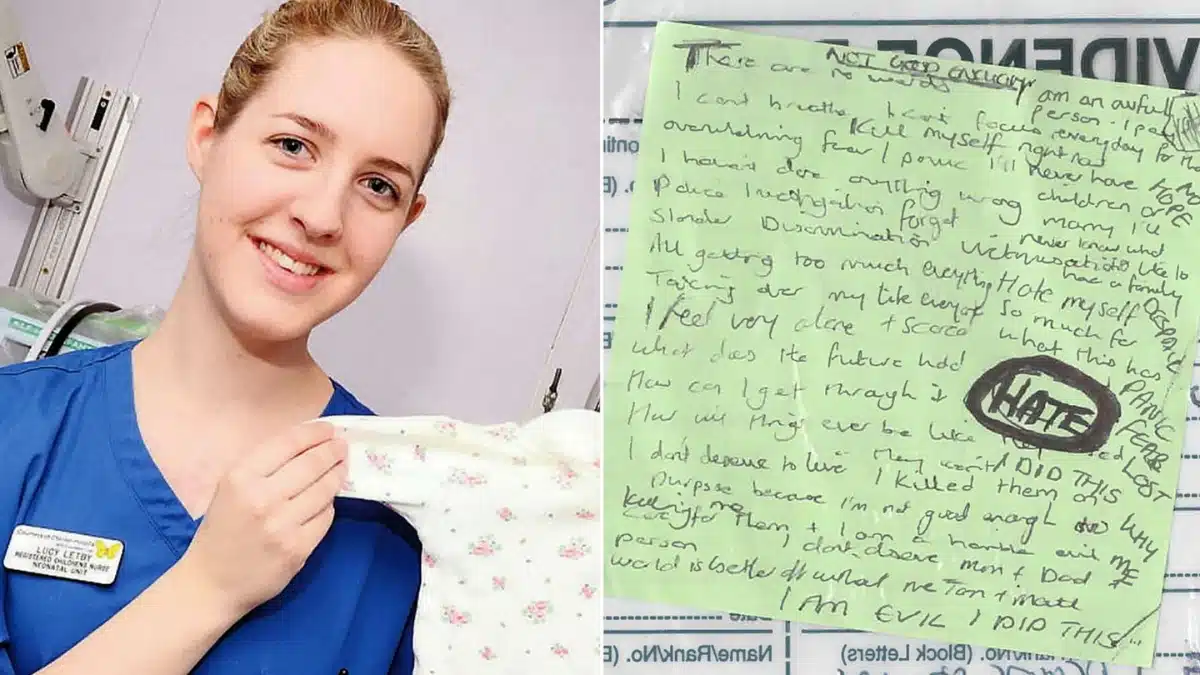 LUCY LETBY
REGISTERED CHILDREN'S NURSE
NEONATAL UNIT
VIDENCE
NOT GOOD ENOUGH
There are no words
I am an awful person
I can't breathe I can't focus
Kill myself right now
everyday for that
overwhelming fear / panic
I'll never have
HOPE
I haven't done anything wrong
children or marry I'll
never know what
Police investigation forget
Slander Discrimination Victimisation
like to have a family
All getting too much everything
Hate myself so much for
what this has
DESPAIR
Taking over my life everyone
I feel very alone + scared
What does the future hold
PANIC
FEAR
LOST
How can I get through it
HATE
How will things ever be like
they
I DID THIS
I don't deserve to live
I killed them on
purpose because I'm not good enough
WHY
ME
care for them + I am a horrible evil
person
I don't deserve mum + Dad
world is better off without me
I AM EVIL I DID THIS
Name/Rank/No.
Rank/No. (Block Letters)